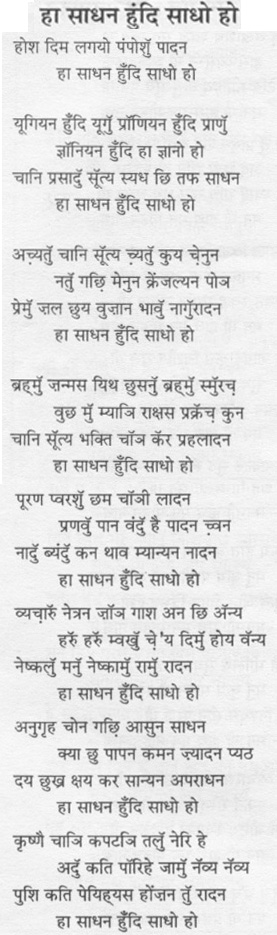 हा साधन हुंदि साधो हो
होश दिम लगयो पंपोशुँ पादन
हा साधन हुँदि साधो हो
यूगियन हुँदि यूगुँ प्रॉणियन हुँदि प्राणुँ
ज्ञॉनियन हुँदि हा ज्ञानो हो
चानि प्रसादुँ सूँत्य स्यध छि तफ साधन
हा साधन हुँदि साधो हो
अच़्यतुँ चानि सूँत्य च़्यतुँ कुय चे़नुन
नतुँ गछि़ मेनुन क्रेंजल्यन पोञ
प्रेमुँ ज़ल छुय वुज़ान भावुँ नागुँरादन
हा साधन हुँदि साधो हो
ब्रह्मुँ ज़न्मस यिथ छुसनुँ ब्रह्मुँ स्मुँरच़
वुछ मुँ म्याञि राक्षस प्रक्रॅच़ कुन
चानि सूँत्य भक्ति चॉञ कॅर प्रहलादन
हा साधन हुँदि साधो हो
पूरण प्वरशुँ छम चॉञी लादन
प्रणवुँ पान वंदुँ है पादन च़्वन
नादुँ ब्यंदुँ कन थाव म्यान्यन नादन
हा साधन हुँदि साधो हो
व्यचा़रुँ नेत्रन ज़ॉञ गाश अन छि अॅन्य
हरुँ हरुँ म्वखुँ चे़'य दिमुँ होय वॅन्य
नेष्कलुँ मनुँ नेष्कामुँ रामुँ रादन
हा साधन हुँदि साधो हो
अनुगृह चोन गछि़ आसुन साधन
क्या छु पापन कमन ज़्यादन प्यठ
दय छुख़ क्षय कर सान्यन अपराधन
हा साधन हुँदि साधो हो
कृष्णै चाञि कपटञि तलुँ नेरि हे
अदुँ कति पॉरिहे जामुँ नॅव्य नॅव्य
पुशि कति पेयिह्यस होंज़न तुँ रादन
हा साधन हुँदि साधो हो